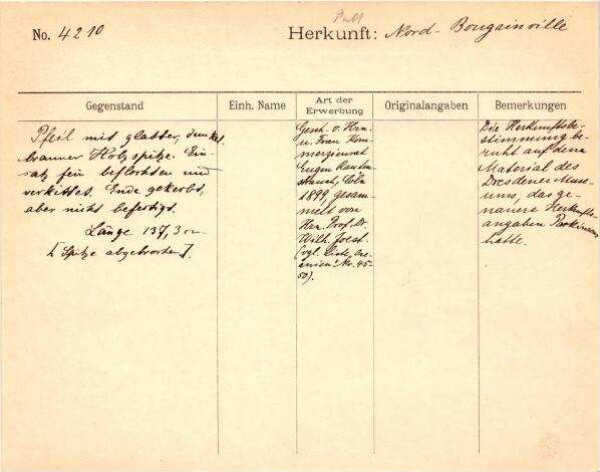 No. 4210
Herkunft: Nord-Bougainville
Gegenstand
Einh. Name
Art der
Erwerbung
Originalangaben
Bemerkungen
Pfeil mit glatter, dunkel
brauner Holzspitze. Ein-
satz fein beflochten und
verkittet. Ende gekerbt,
aber nicht befestigt.
Länge 137,3 cm
[Spitze abgebrochen].
Gesch. v. Hrn.
u. Frau Kom-
merzienrat
Eugen Rauten-
strauch, Cöln
1899, gesam-
melt von
Hrn. Prof. Dr.
Wilh. Joest.
(vgl. Liste,
Nr. 45-
50).
Die Herkunftsbe-
stimmung be-
ruht auf dem
Material des
Dresdener Muse-
ums, das ge-
nauere Herkunfts-
angaben Parkinsons
hatte.